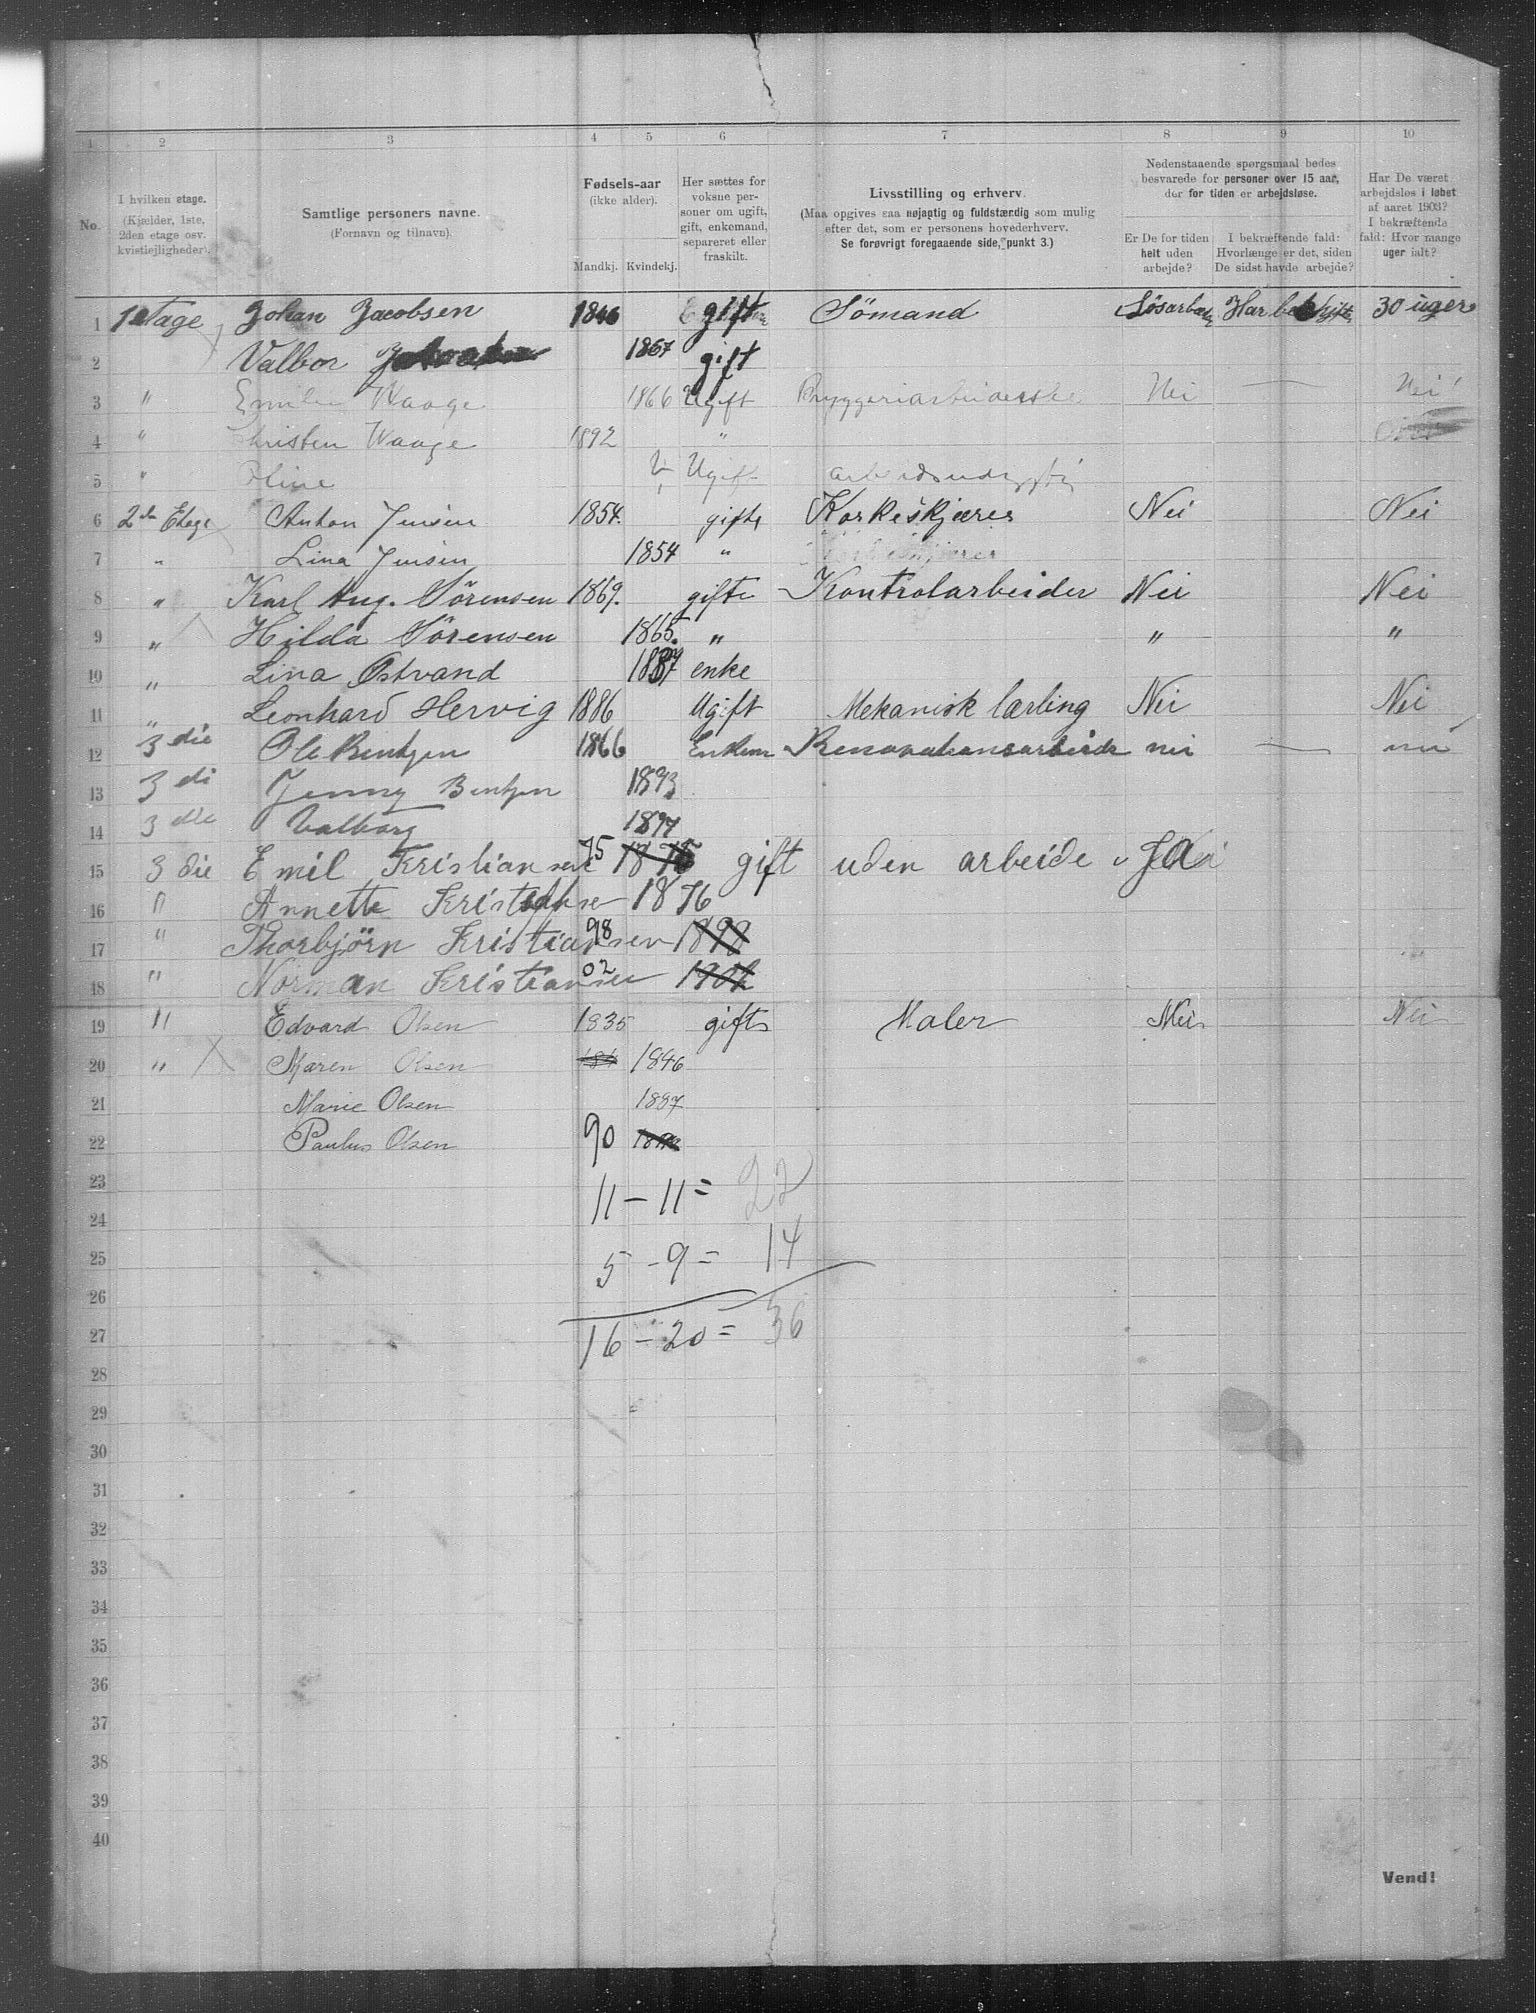 1 2 3 4 5 6 7 8 9 10
No.
I hvilken etage. (Kjælder, 1ste, 2den etage osv. kvistlejligheder).
Samtlige personers navne. (Fornavn og tilnavn).
Fødsels-aar (ikke alder). Mandkj. Kvindekj.
Her sættes for voksne personer om ugift, gift, enkemand, separeret eller fraskilt.
Livsstilling og erhverv. (Maa opgives saa nøjagtig og fuldstærdig som mulig efter det, som er personens hovederhverv. Se forøvrigt foregaaende side, punkt 3.)
Nedenstaaende spørgsmaal bedes besvarede for personer over 15 aar, der for tiden er arbejdsløse.
Er De for tiden helt uden arbejde?
I bekræftende fald: Hvorlænge er det, siden De sidst havde arbejde?
Har De været arbejdsløs i løbet af aaret 1903? I bekræftende fald: Hvor mange uger ialt?
1 1 Etage Johan Jacobsen 1846 gift Sömand Løsarbeide 30 uger
2 Valbor 1867 gift
3 " Emilie Waage 1866 Ugift Bryggeriarbeiderske Nei — Nei
4 " Christen Waage 1892 "
5 " Oline Ugift
6 2de Etage Anton Jensen 1854. gifte Korkeskjærer Nei Nei
7 " Lina Jensen 1854 "
8 " Karl Aug. Sörensen 1869. gifte Kontrolarbeider Nei Nei
9 " Hilda Sörensen 1865. " " "
10 " Lina Østvand enke
11 " Leonhard Hervig 1886 Ugift Mekanisk lærling Nei Nei
12 3 die Ole Bentzen 1866 Enkem Renovationsarbeider nei — nei
13 3 di Jenny Bentzen 1893
14 3 die Valborg 1897
15 3 die Emil Kristiansen 75 gift uden arbeide Ja
16 " Annette Kristiansen 1876
17 " Thorbjörn Kristiansen 98 1898
18 " Norman Kristiansen 02 1902
19 " Edvard Olsen 1835 gift Maler Nei Nei
20 " Maren Olsen 1846
21 Marie Olsen 1887
22 Paulus Olsen 90
23
11 — 11 = 22
24
25
5 - 9 = 14
26
27
16 - 20 = 36
28
29
30
31
32
33
34
35
36
37
38
39
40
Vend!